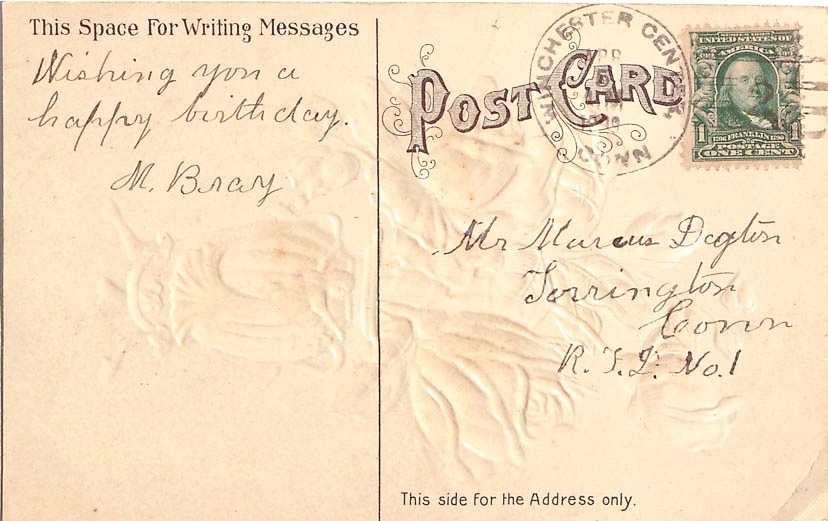 This Space For Writing Messages
Wishing you a
happy birthday.
M. Bray
POST CARD
WINCHESTER CENTER
APR
CONN
SERIES 1902
UNITED STATES OF
AMERICA
1706 FRANKLIN 1790
1 1
POSTAGE
ONE CENT
Mr Marcus Dayton
Torrington
Conn
R. F. D. No. 1
This side for the Address only.